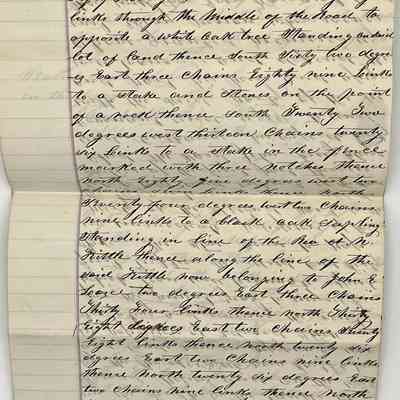 links through the Middle of the Road to
opposite a White Oak tree Standing on said
lot of land thence South Sixty two degrees
East three Chains Eighty nine links
to a Stake and Stones on the point
of a rock thence South Twenty Two
degrees West thirteen Chains twenty
six links to a Stake in the fence
marked with three notches thence
north Eighty five degrees west two
North
Seventy four degrees west two Chains
nine links to a black Oak Sapling
Standing in line of the
Kittle thence along the line of the
said Kittle now belonging to John E
two degrees East three Chains
Thirty four links thence north Thirty
Eight degrees East two Chains Twenty
Eight links thence north twenty six
degrees East two Chains nine links
thence north twenty six degrees East
two Chains nine links thence North